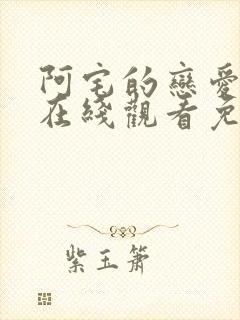 阿宅的戀愛
在綫觀看免
紫玉簫